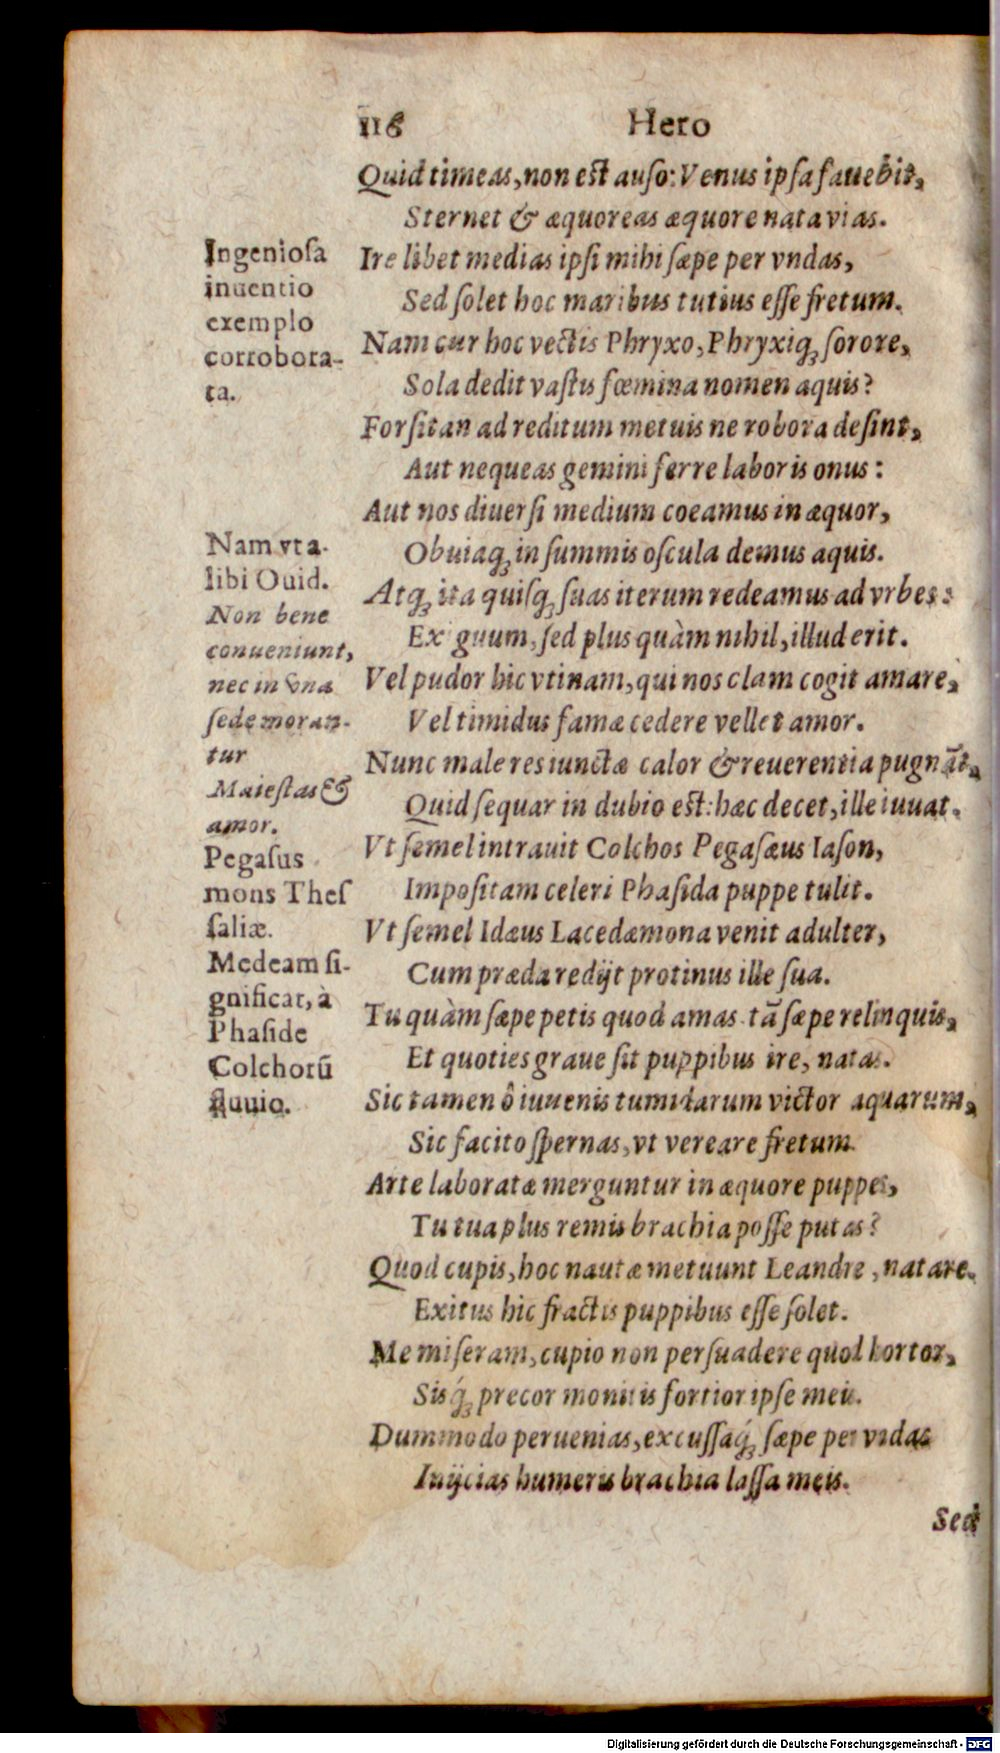 116 Hero
Quid timeas, non est auso: Venus ipsa fauebit,
Sternet & æquoreas æquore nata vias.
Ire libet medias ipsi mihi sæpe per vndas,
Sed solet hoc maribus tutius esse fretum.
Nam cur hoc vectis Phryxo, Phryxiq́ꝫ sorore,
Sola dedit vastis fœmina nomen aquis?
Forsitan ad reditum metuis ne robora desint,
Aut nequeas gemini ferre laboris onus:
Aut nos diuersi medium coeamus in æquor,
Obuiaqꝫ in summis oscula demus aquis.
Atqꝫ ita quisqꝫ suas iterum redeamus ad vrbes:
Exiguum, sed plus quàm nihil, illud erit.
Vel pudor hic vtinam, qui nos clam cogit amare,
Vel timidus famæ cedere vellet amor.
Nunc male res iunctæ calor & reuerentia pugnāt,
Quid sequar in dubio est: hæc decet, ille iuuat.
Vt semel intrauit Colchos Pegasæus Iason,
Impositam celeri Phasida puppe tulit.
Vt semel Idæus Lacedæmona venit adulter,
Cum præda redijt protinus ille sua.
Tu quàm sæpe petis quod amas tā sæpe relinquis,
Et quoties graue sit puppibus ire, natas.
Sic tamen ô iuuenis tumidarum victor aquarum,
Sic facito spernas, vt vereare fretum.
Arte laboratæ merguntur in æquore puppes,
Tu tua plus remis brachia posse putas?
Quod cupis, hoc nautæ metuunt Leandre, natare.
Exitus hic fractis puppibus esse solet.
Me miseram, cupio non persuadere quod hortor,
Sisq́ꝫ precor monitis fortior ipse meis.
Dummodo peruenias, excussaq́ꝫ sæpe per vndas
Inijcias humeris brachia lassa meis.
Sed
Ingeniosa
inuentio
exemplo
corrobora-
ta.
Nam vt a-
libi Ouid.
Non bene
conueniunt,
nec in vna
sede moran-
tur
Maiestas &
amor.
Pegasus
mons Thes
saliæ.
Medeam si-
gnificat, à
Phaside
Colchorū
fluuio.
Digitalisierung gefördert durch die Deutsche Forschungsgemeinschaft - DFG